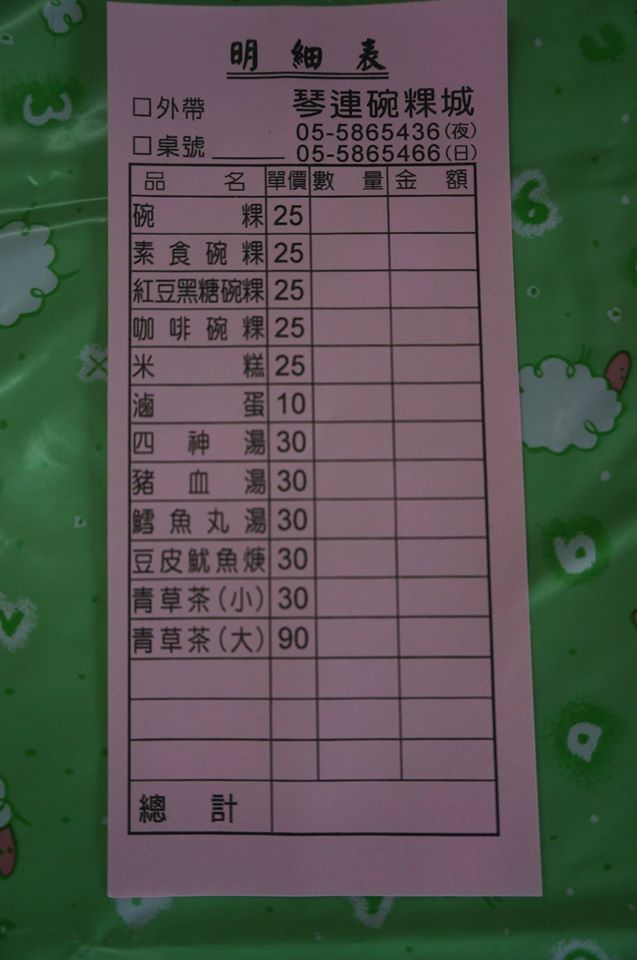 明細表
□外帶 琴連碗粿城
05-5865436(夜)
□桌號______ 05-5865466(日)
品名 單價 數量 金額
碗粿 25
素食碗粿 25
紅豆黑糖碗粿 25
咖啡碗粿 25
米糕 25
滷蛋 10
四神湯 30
豬血湯 30
鱈魚丸湯 30
豆皮魷魚焿 30
青草茶(小) 30
青草茶(大) 90
總計